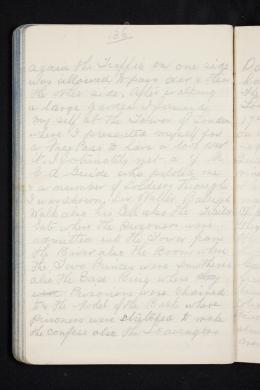 136
again the Traffic on one side
was allowed to pass over & then
the other side. After walking
a large garden I found
my self at the Tower of London
where I presented myself for
a Free Pass to have a look over
it. I fortunately met a Y M
C A Guide who piloted me
& a number of Soldiers through
I was shown, Sir Walter Raleighs
Walk also his Cell also the Traitors
Gate where the Prisoners were
admitted into the Tower from
the River also the Room where
the Two Princes were Smothered
also the Base Ring where
were Prisoners were chained
to the of the where
Prisoners were stretched to make
the confess also the Scavengers